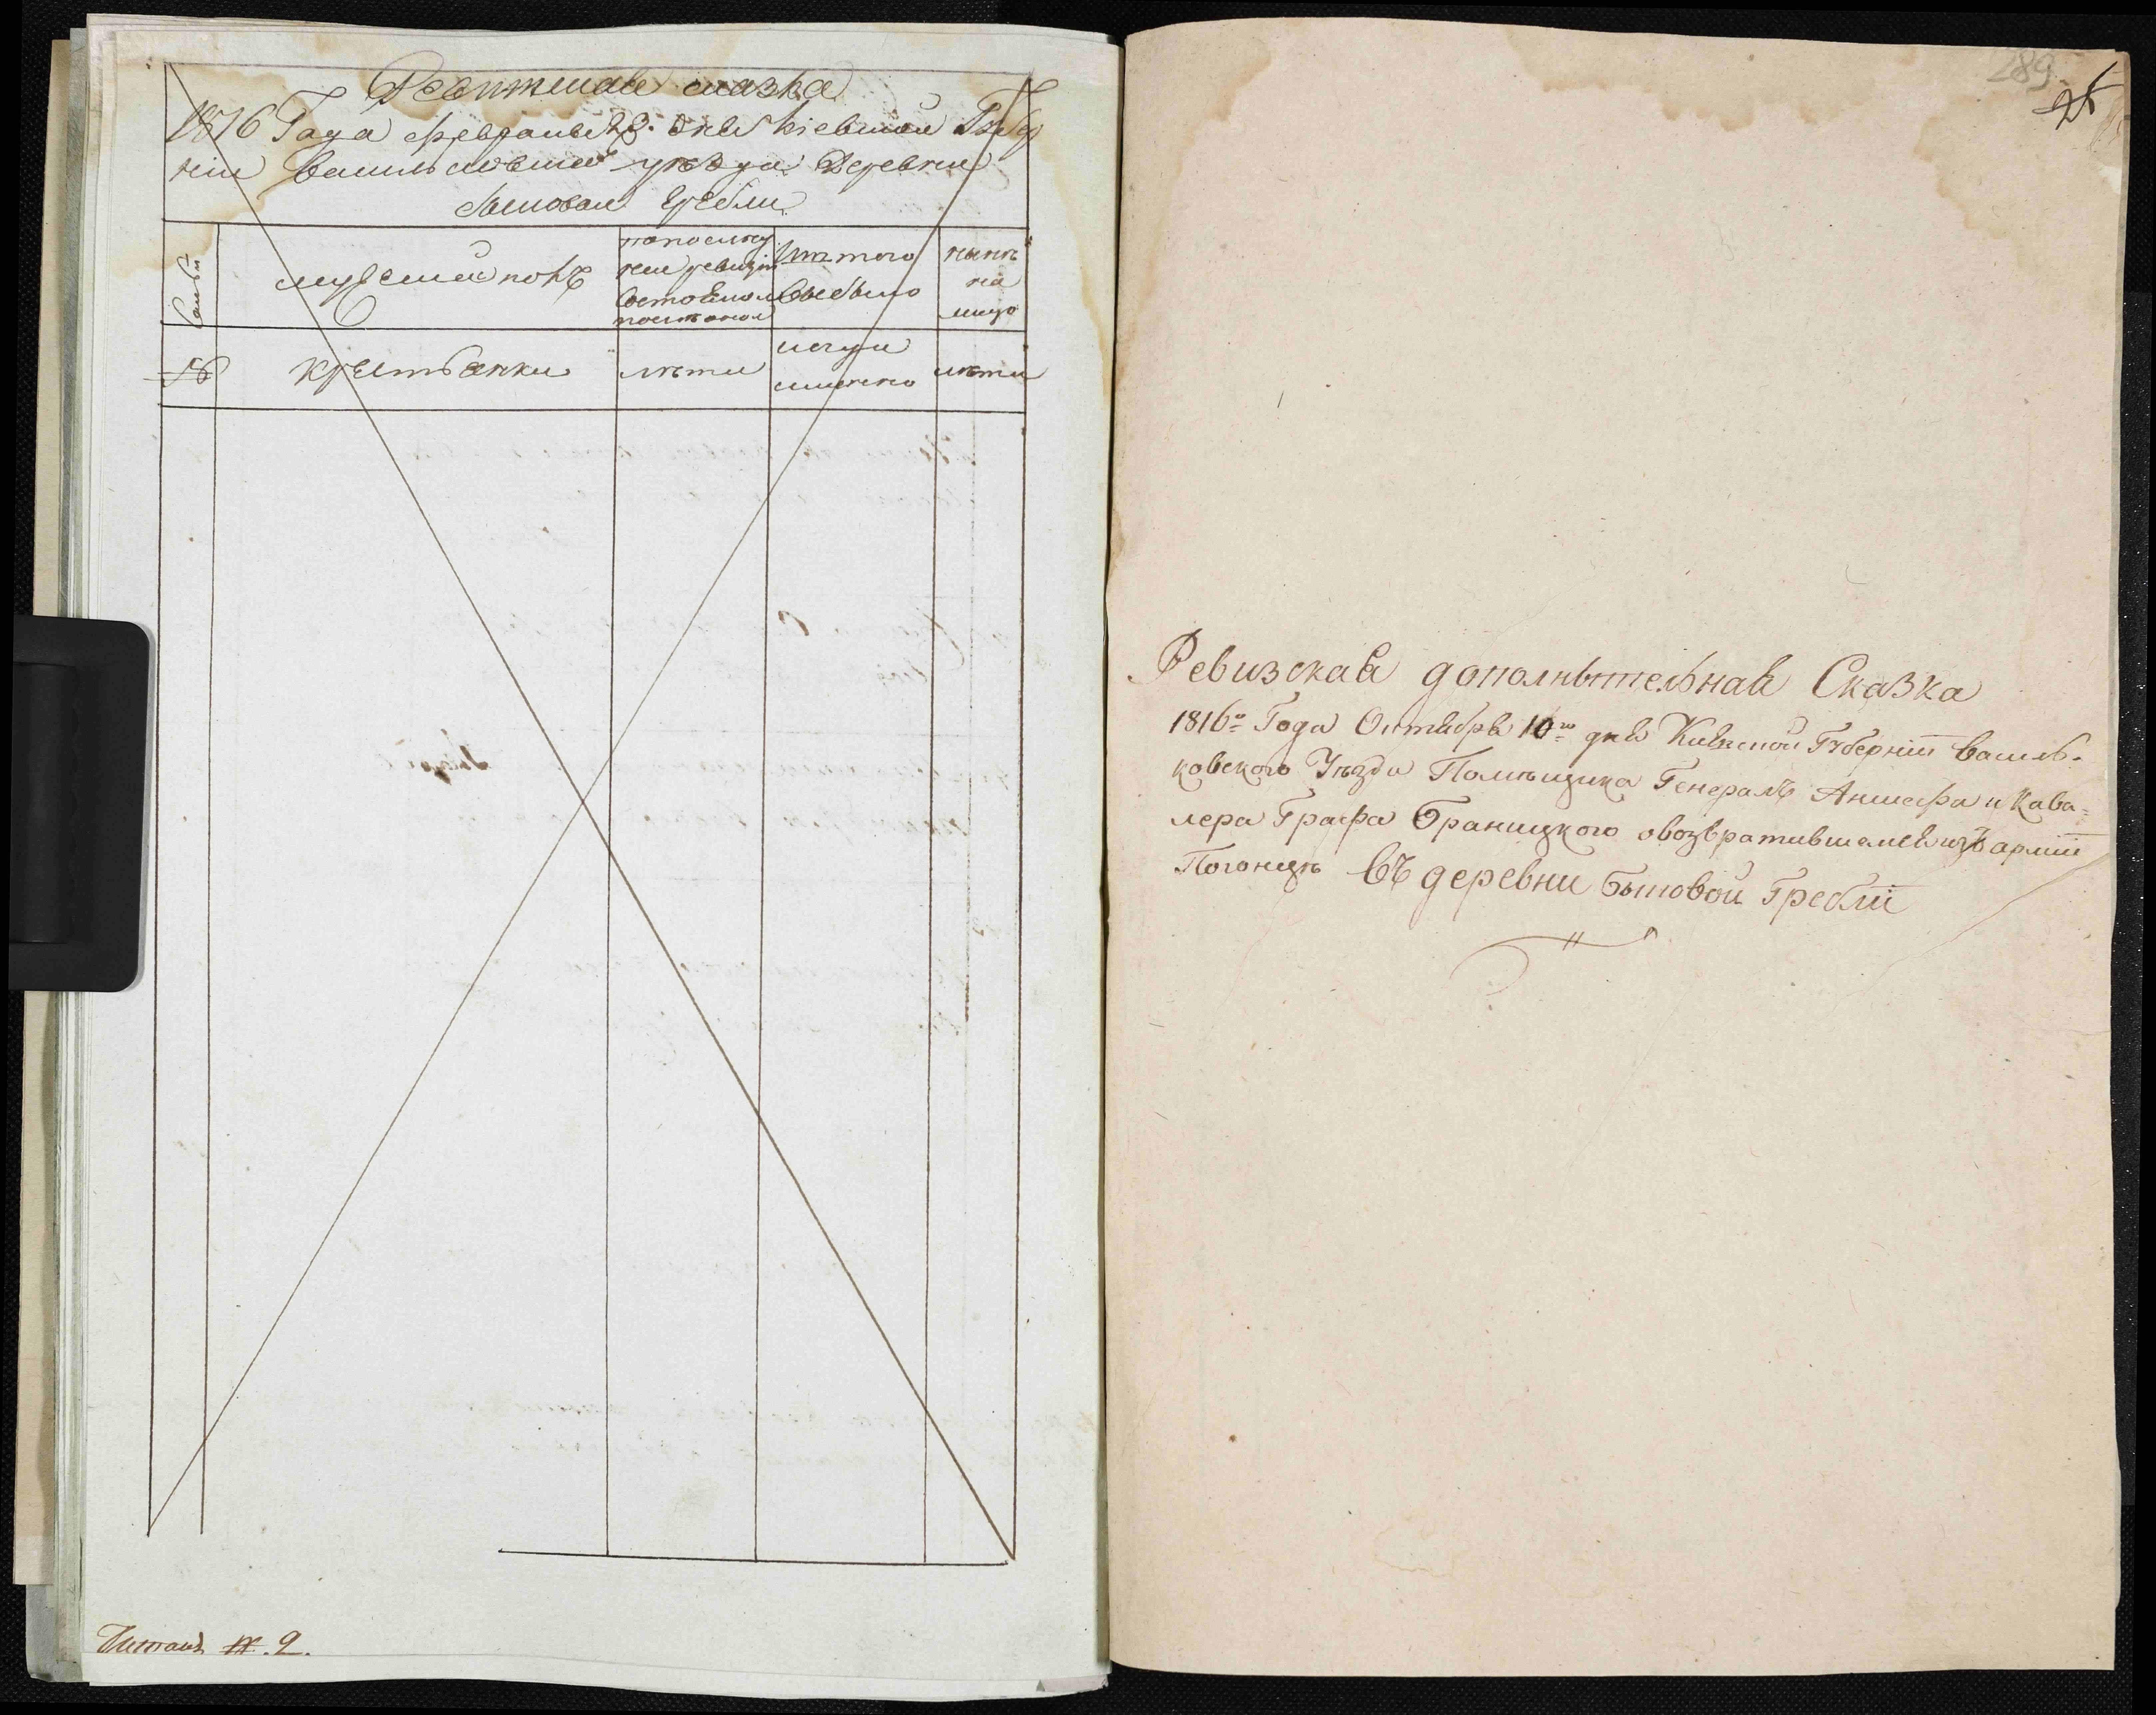 Ревижская сказка
1816 Года февраля 28. дня Кіевской Губер
ніи Васильковскаго уезда Деревни
Бытовой Гребли
мужеский полъ
по послед
ней ревизіи
состояло
Изъ того
выбыло
ныне
на
лицо
№
Крестьянки
лета
когда
именно
лета
№. 2.
289
Ревизская дополнытельная Сказка
1816го Года Октября 10го дня Киевской Губерніи Василь-
ковского Уезда Помещика Генералъ Аншефа и Кава=
лера Графа Браницкого овозвратившемся изъ арміи
Погонце въ деревни Бытовой Греблі